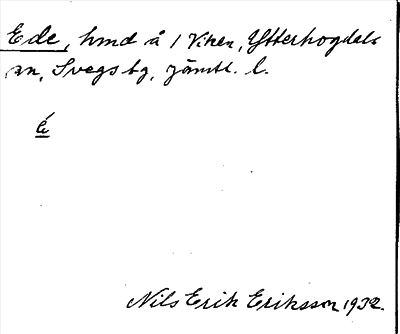 Ede, hmd å 1 Viken, Ytterhogdals
sn, Svegs tg, Jämtl. l.
é
Nils Erik Eriksson 1932.